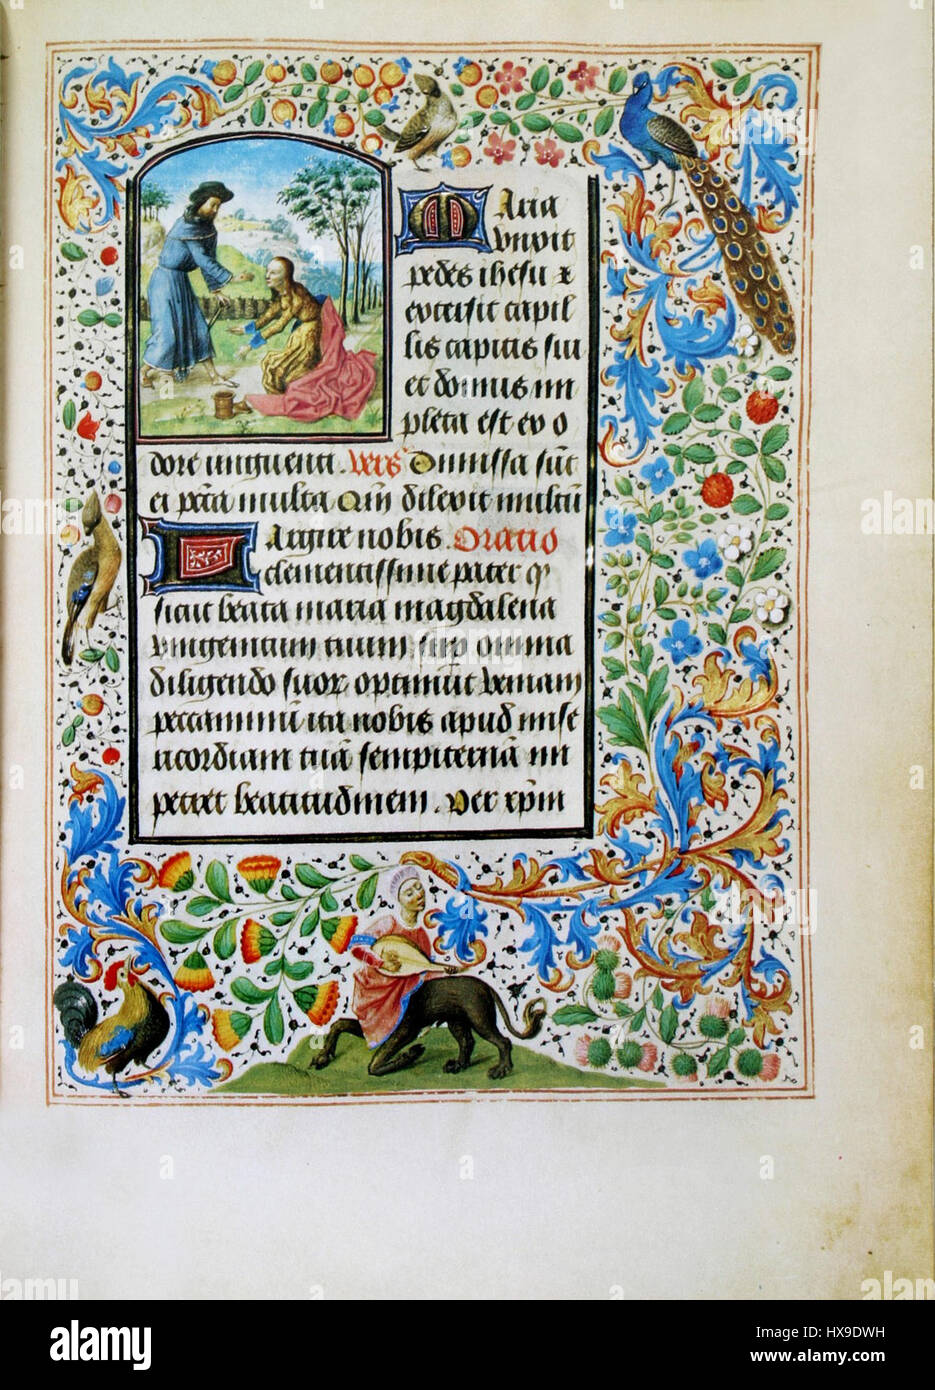 Maria
vnxit
pedes ihesu x
extersit capil
lis capitis sui
et domus im
pleta est ex o
dore unguenti. Vers Dimissa sūt
ei pctā multa Qm̄ dilexit multū
Largire nobis. Oratio
clementissime pater q
sicut beata maria magdalena
vnigenitum tuum sup omnia
diligendo suor optinuit veniam
peccaminū ita nobis apud mise
ricordiam tuā sempiternā im
petret beatitudinem. Per xpm̄
alamy
Image ID: HX9DWH
www.alamy.com